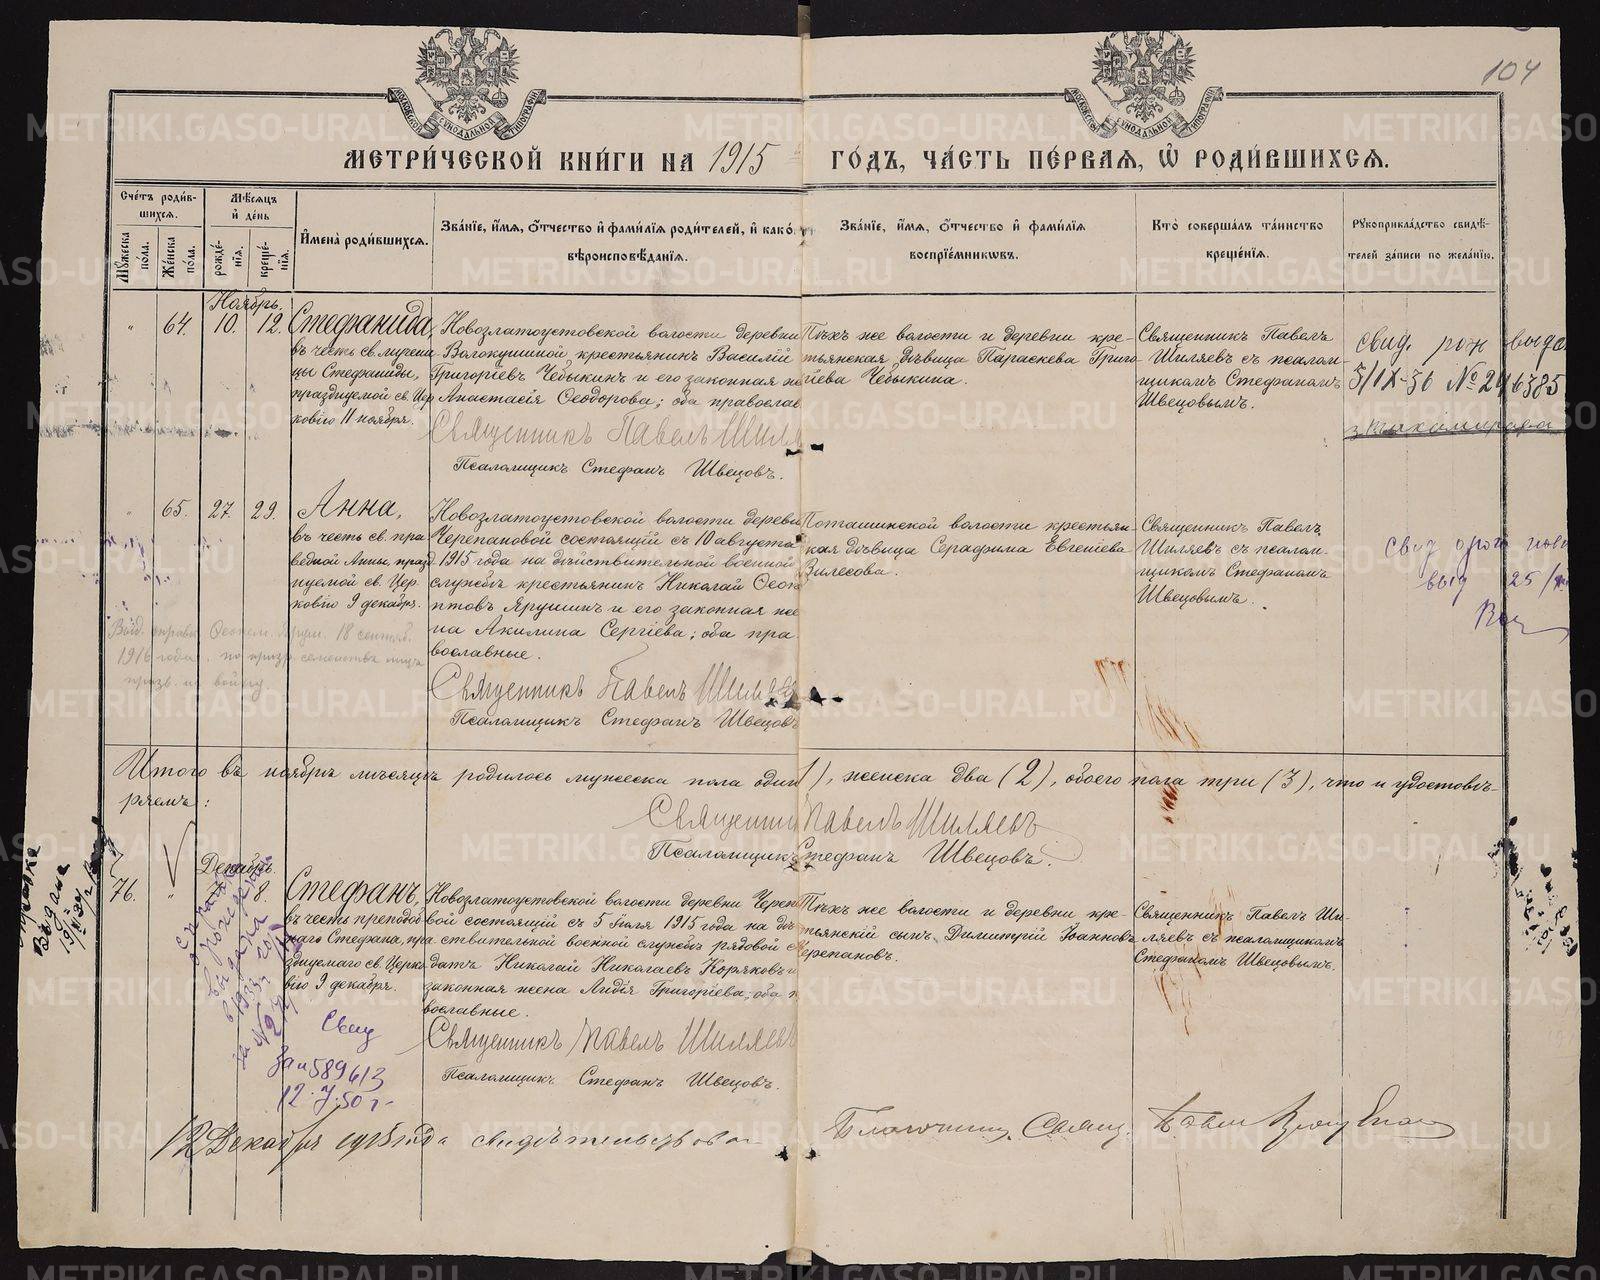 104
МЕТРИЧЕСКОЙ КНИГИ НА 1915 ГОДЪ, ЧАСТЬ ПЕРВАЯ, Ѿ РОДИВШИХСЯ.
Счетъ родив-
шихся.
Мѣсяцъ
и день
Мужеска пола.
Женска пола.
рожде-
нія.
креще-
нія.
Имена родившихся.
Званіе, имя, отчество и фамилія родителей, и како-
вѣроисповѣданія.
Званіе, имя, отчество и фамилія
воспріемниковъ.
Кто совершалъ таинство
крещенія.
Рукоприкладство свидѣ-
телей записи по желанію.
Ноябрь.
" 64. 10. 12.
Стефанида,
въ честь св. мучени
цы Стефаниды,
празднуемой св. Цер
ковію 11 ноября.
Новозлатоустовской волости деревни
Волокушиной крестьянинъ Василій
Григоріевъ Чебыкинъ и его законная
Анастасія Ѳеодорова; оба православ
Священникъ Павелъ Шиля
Псаломщикъ Стефанъ Швецовъ.
Тѣхъ же волости и деревни кре-
стьянская дѣвица Параскева Григо
ріева Чебыкина.
Священникъ Павелъ
Шиляевъ съ псалом-
щикомъ Стефаномъ
Швецовымъ.
свид. рож выда
3/IX-36 № 246385
" 65. 27. 29.
Анна,
въ честь св. пра
ведной Анны, празд
нуемой св. Цер
ковію 9 декабря.
Новозлатоустовской волости дерев
Черепановой состоящій съ 10 августа
1915 года на дѣйствительной военной
службѣ крестьянинъ Николай Ѳеок
тистовъ Ярушинъ и его законная же
на Акилина Сергіева; оба пра
вославные.
Священникъ Павелъ Шиляе
Псаломщикъ Стефанъ Швецовъ
Поташинской волости крестьян-
кая дѣвица Серафима Евгеніева
Вилесова.
Священникъ Павелъ
Шиляевъ съ псалом-
щикомъ Стефаномъ
Швецовымъ.
свид
выд 25/
Выд. справка 18 сентяб.
1916 года. по призр. семейства лицъ
призв. на войну
Итого въ ноябрѣ мѣсяцѣ родилось мужеска пола один 1), женска два (2), обоего пола три (3), что и удостовѣ-
ряемъ:
Священни Павелъ Шиляевъ
Псаломщикъ Стефанъ Швецовъ.
Декабрь.
76. " 7. 8.
Стефанъ,
въ честь преподоб
наго Стефана, пра
зднуемаго св. Церко
вію 9 декабря.
Новозлатоустовской волости деревни Череп
вой состоящій съ 5 Іюля 1915 года на дѣ
ствительной военной службѣ рядовой с
датъ Николай Николаевъ Коряковъ и
законная жена Лидія Григоріева; оба п
вославные.
Священникъ Павелъ Шиляевъ
Псаломщикъ Стефанъ Швецовъ.
Тѣхъ же волости и деревни кре-
стьянскій сынъ Димитрій Іоанновъ
Черепановъ.
Священникъ Павелъ Ши-
ляевъ съ псаломщикомъ
Стефаномъ Швецовымъ.
Справка
Выдана
Справка
о рожден
выдана
Свид
589613
12.7.50 г
12 Декабря 1915 года свидѣтельствовал
Благочин. Свящ.
METRIKI.GASO-URAL.RU